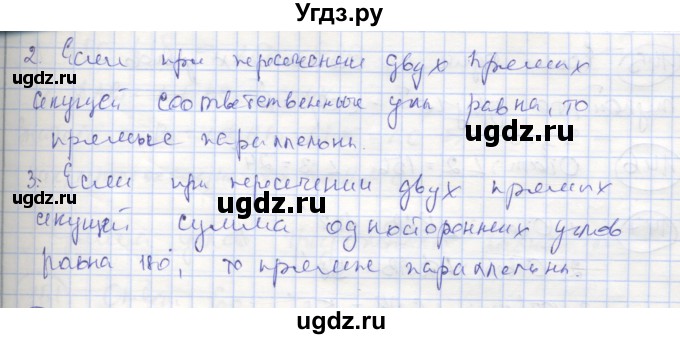 Угдз.ру
2. Если при пересечении двух прямых
секущей соответственные углы равна, то
прямые параллельны.
3. Если при пересечении двух прямых
секущей сумма односторонних углов
равна 180°, то прямые параллельны.
ugdz.ru
ugdz.ru
ugdz.ru
ugdz.ru
ugdz.ru
ugdz.ru
ugdz.ru